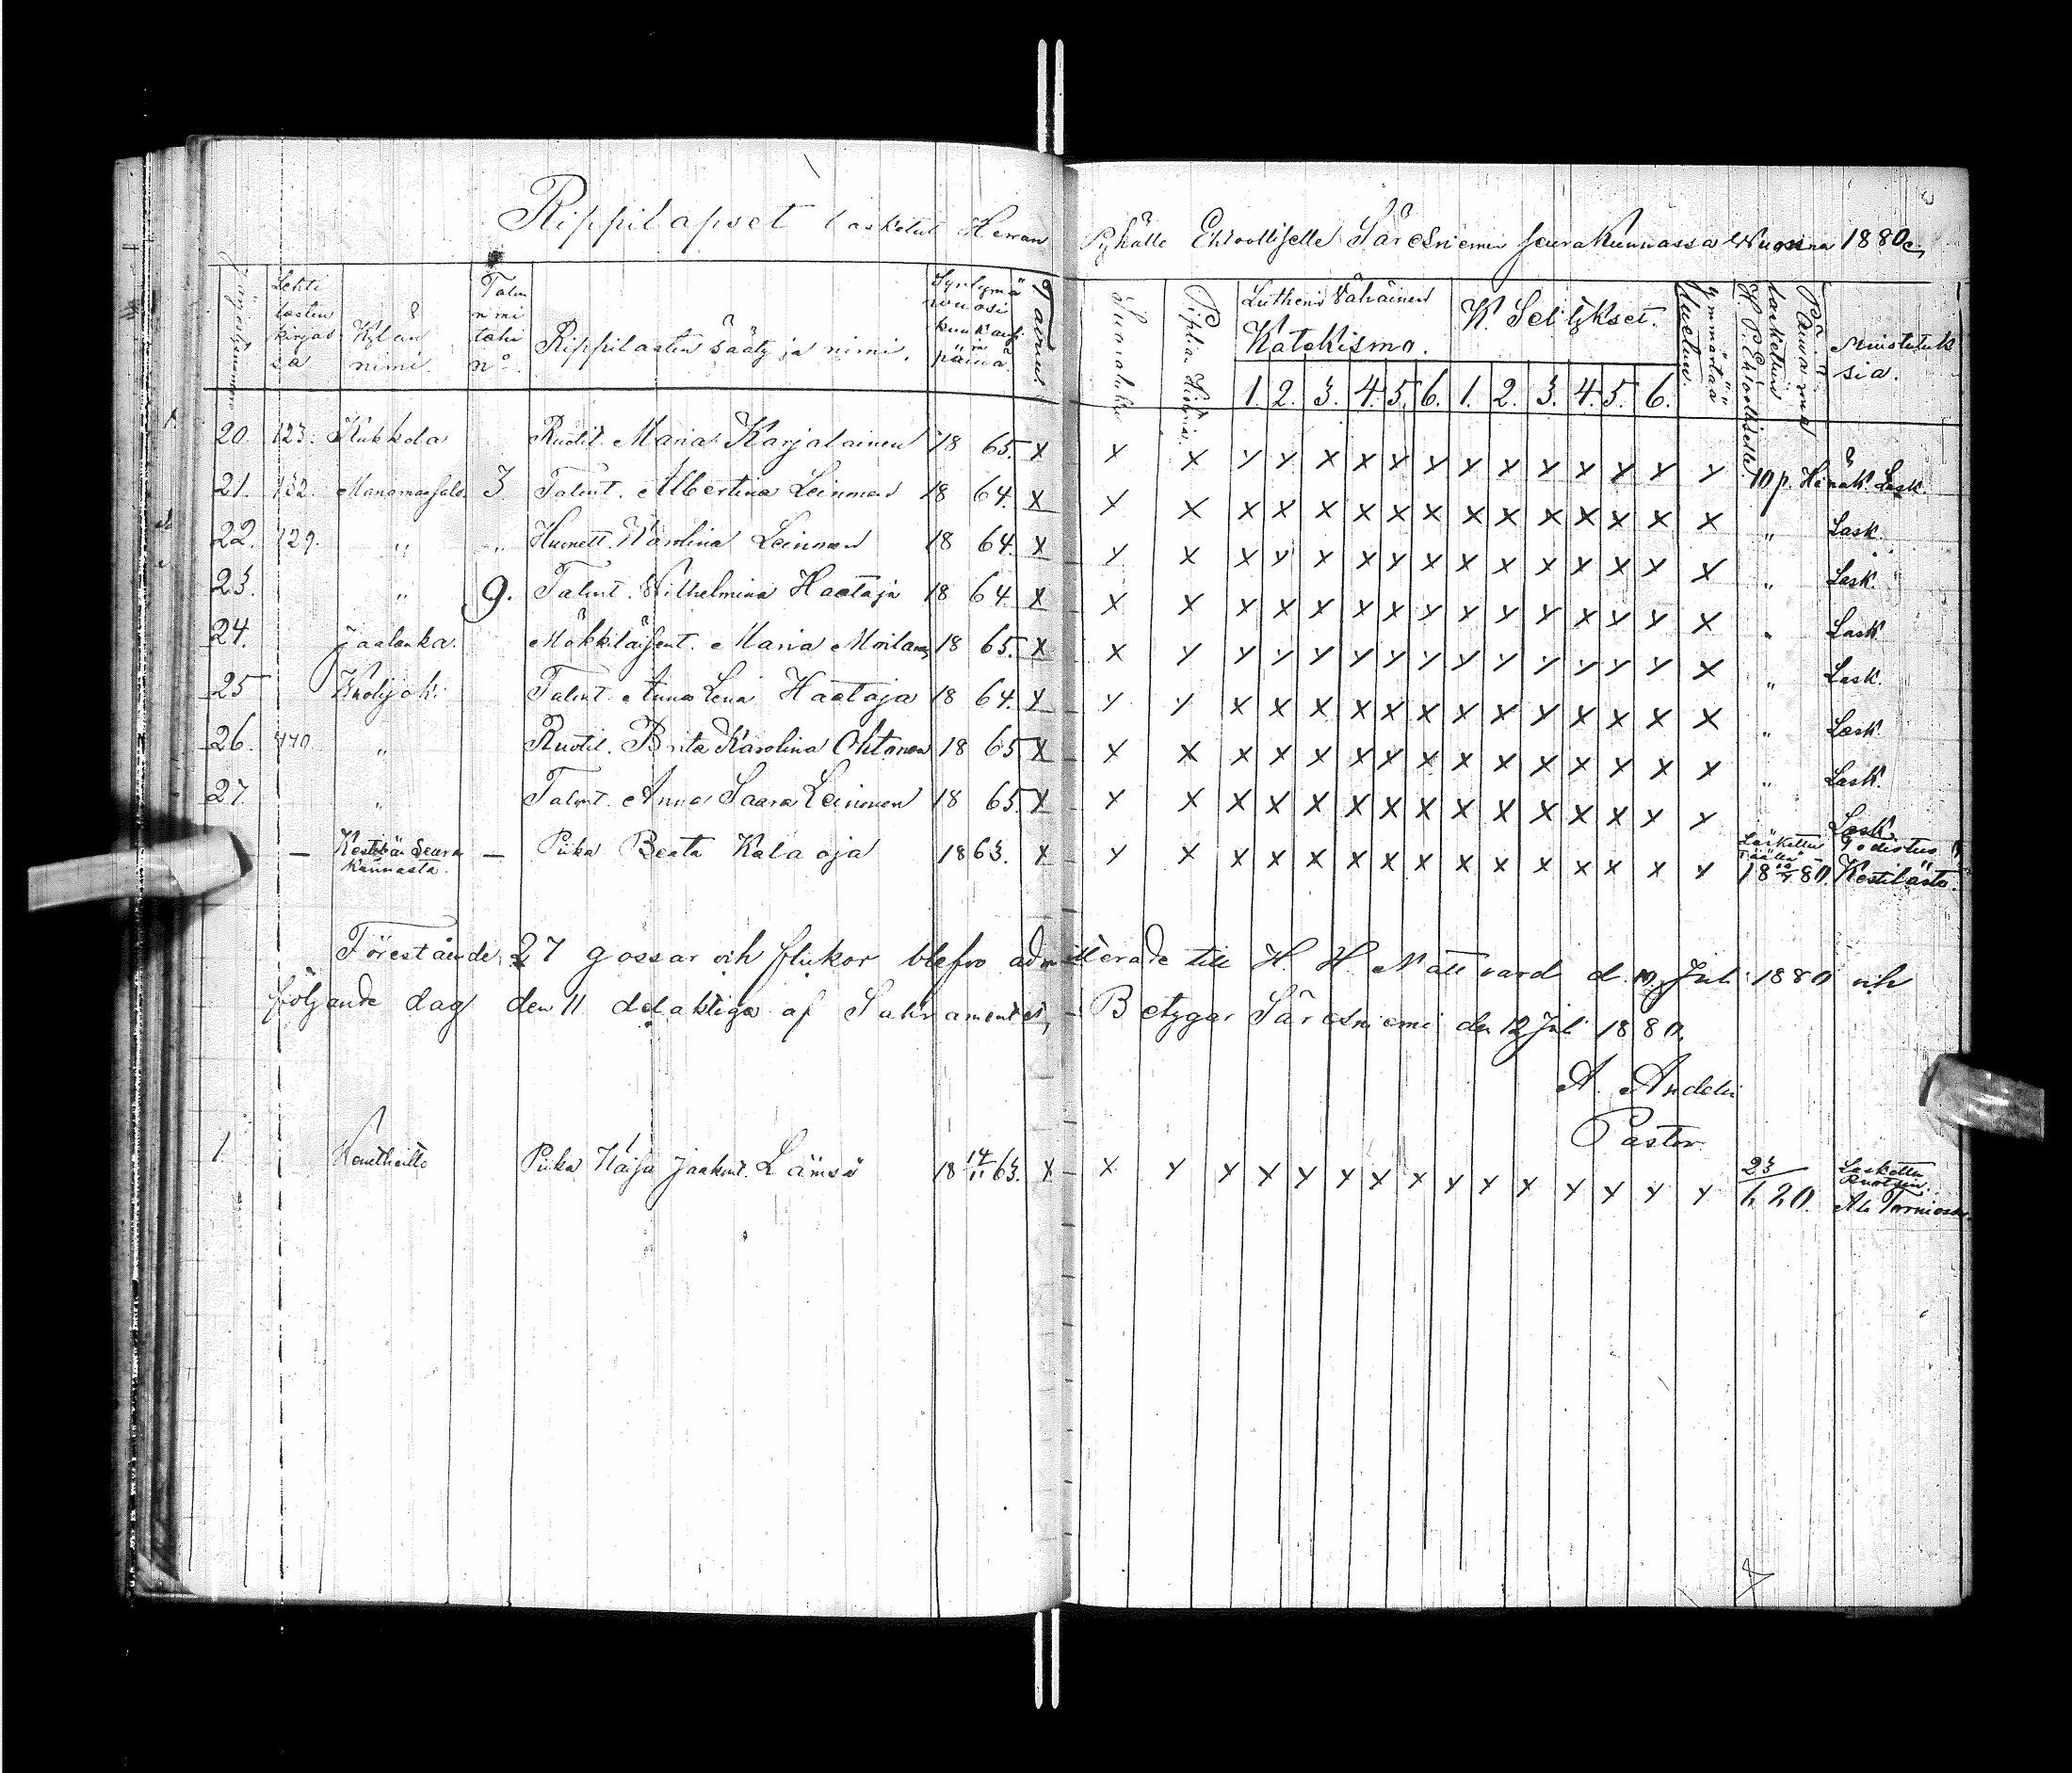 Rippilapset lasketut Herran Pyhälle Ehtoolliselle Säresniemen seurakunnassa Wuonna 1880
Lehti lastenkirjassa
Kylän nimi.
Talon nimi tahi n:o
Rippilasten sääty ja nimi.
Syntymä vuosi kuukausi ja päivä.
Sisäluku
Piplia Histo.
Lutherin Vähäinen Katekismo.
K. Selitykset.
Ymmärtää luetun.
Päiwämä laskettuin H. P. Ehtoolliselle
Muistutuksia.
1. 2. 3. 4. 5. 6. 1. 2. 3. 4. 5. 6.
20. 123. Kukkola Ruotil. Maria Karjalainen 18 65. x x x x x x x x x x x x x x x x x 10 p. Heinäk. Lask.
21. 132. Manamansalo 3 Talont. Albertina Leinonen 18 64. x x x x x x x x x x x x x x x x " Lask.
22. 129. " " Huonett. Karolina Leinonen 18 64. x x x x x x x x x x x x x x x x " Lask.
23. " 9. Talont. Wilhelmina Haataja 18 64. x x x x x x x x x x x x x x x x " Lask.
24. Jaalanka. Mökkiläisent. Maria Moilanen 18 65. x x x x x x x x x x x x x x x x " Lask.
25 Talont. Anna Lena Haataja 18 64. x x x x x x x x x x x x x x x x " Lask.
26. 440 " Ruotil. Brita Karolina Ohtonen 18 65 x x x x x x x x x x x x x x x x " Lask.
27 " Talont. Anna Saara Leinonen 18 65. x x x x x x x x x x x x x x x x " Lask.
— Kestilän Seurakunnasta. — Piika Beata Kalaoja 1863. x x x x x x x x x x x x x x x x Laskettu täällä 18 10/7 80. Todistus Kestilästä.
Förestående 27 gossar och flickor blefvo admitterade till H. H. Nattvard d. 10 Juli 1880 och
följande dag den 11 delaktiga af Sakramentet, Betygar Säresniemi den 12 Juli 1880.
A. Andelin
Pastor.
1. Piika Kaisa Jaakont. Lämsä 18 14/11 63. x x x x x x x x x x x x x x x x 23/1 20. Laskettu Ruotsin Ala Torniossa